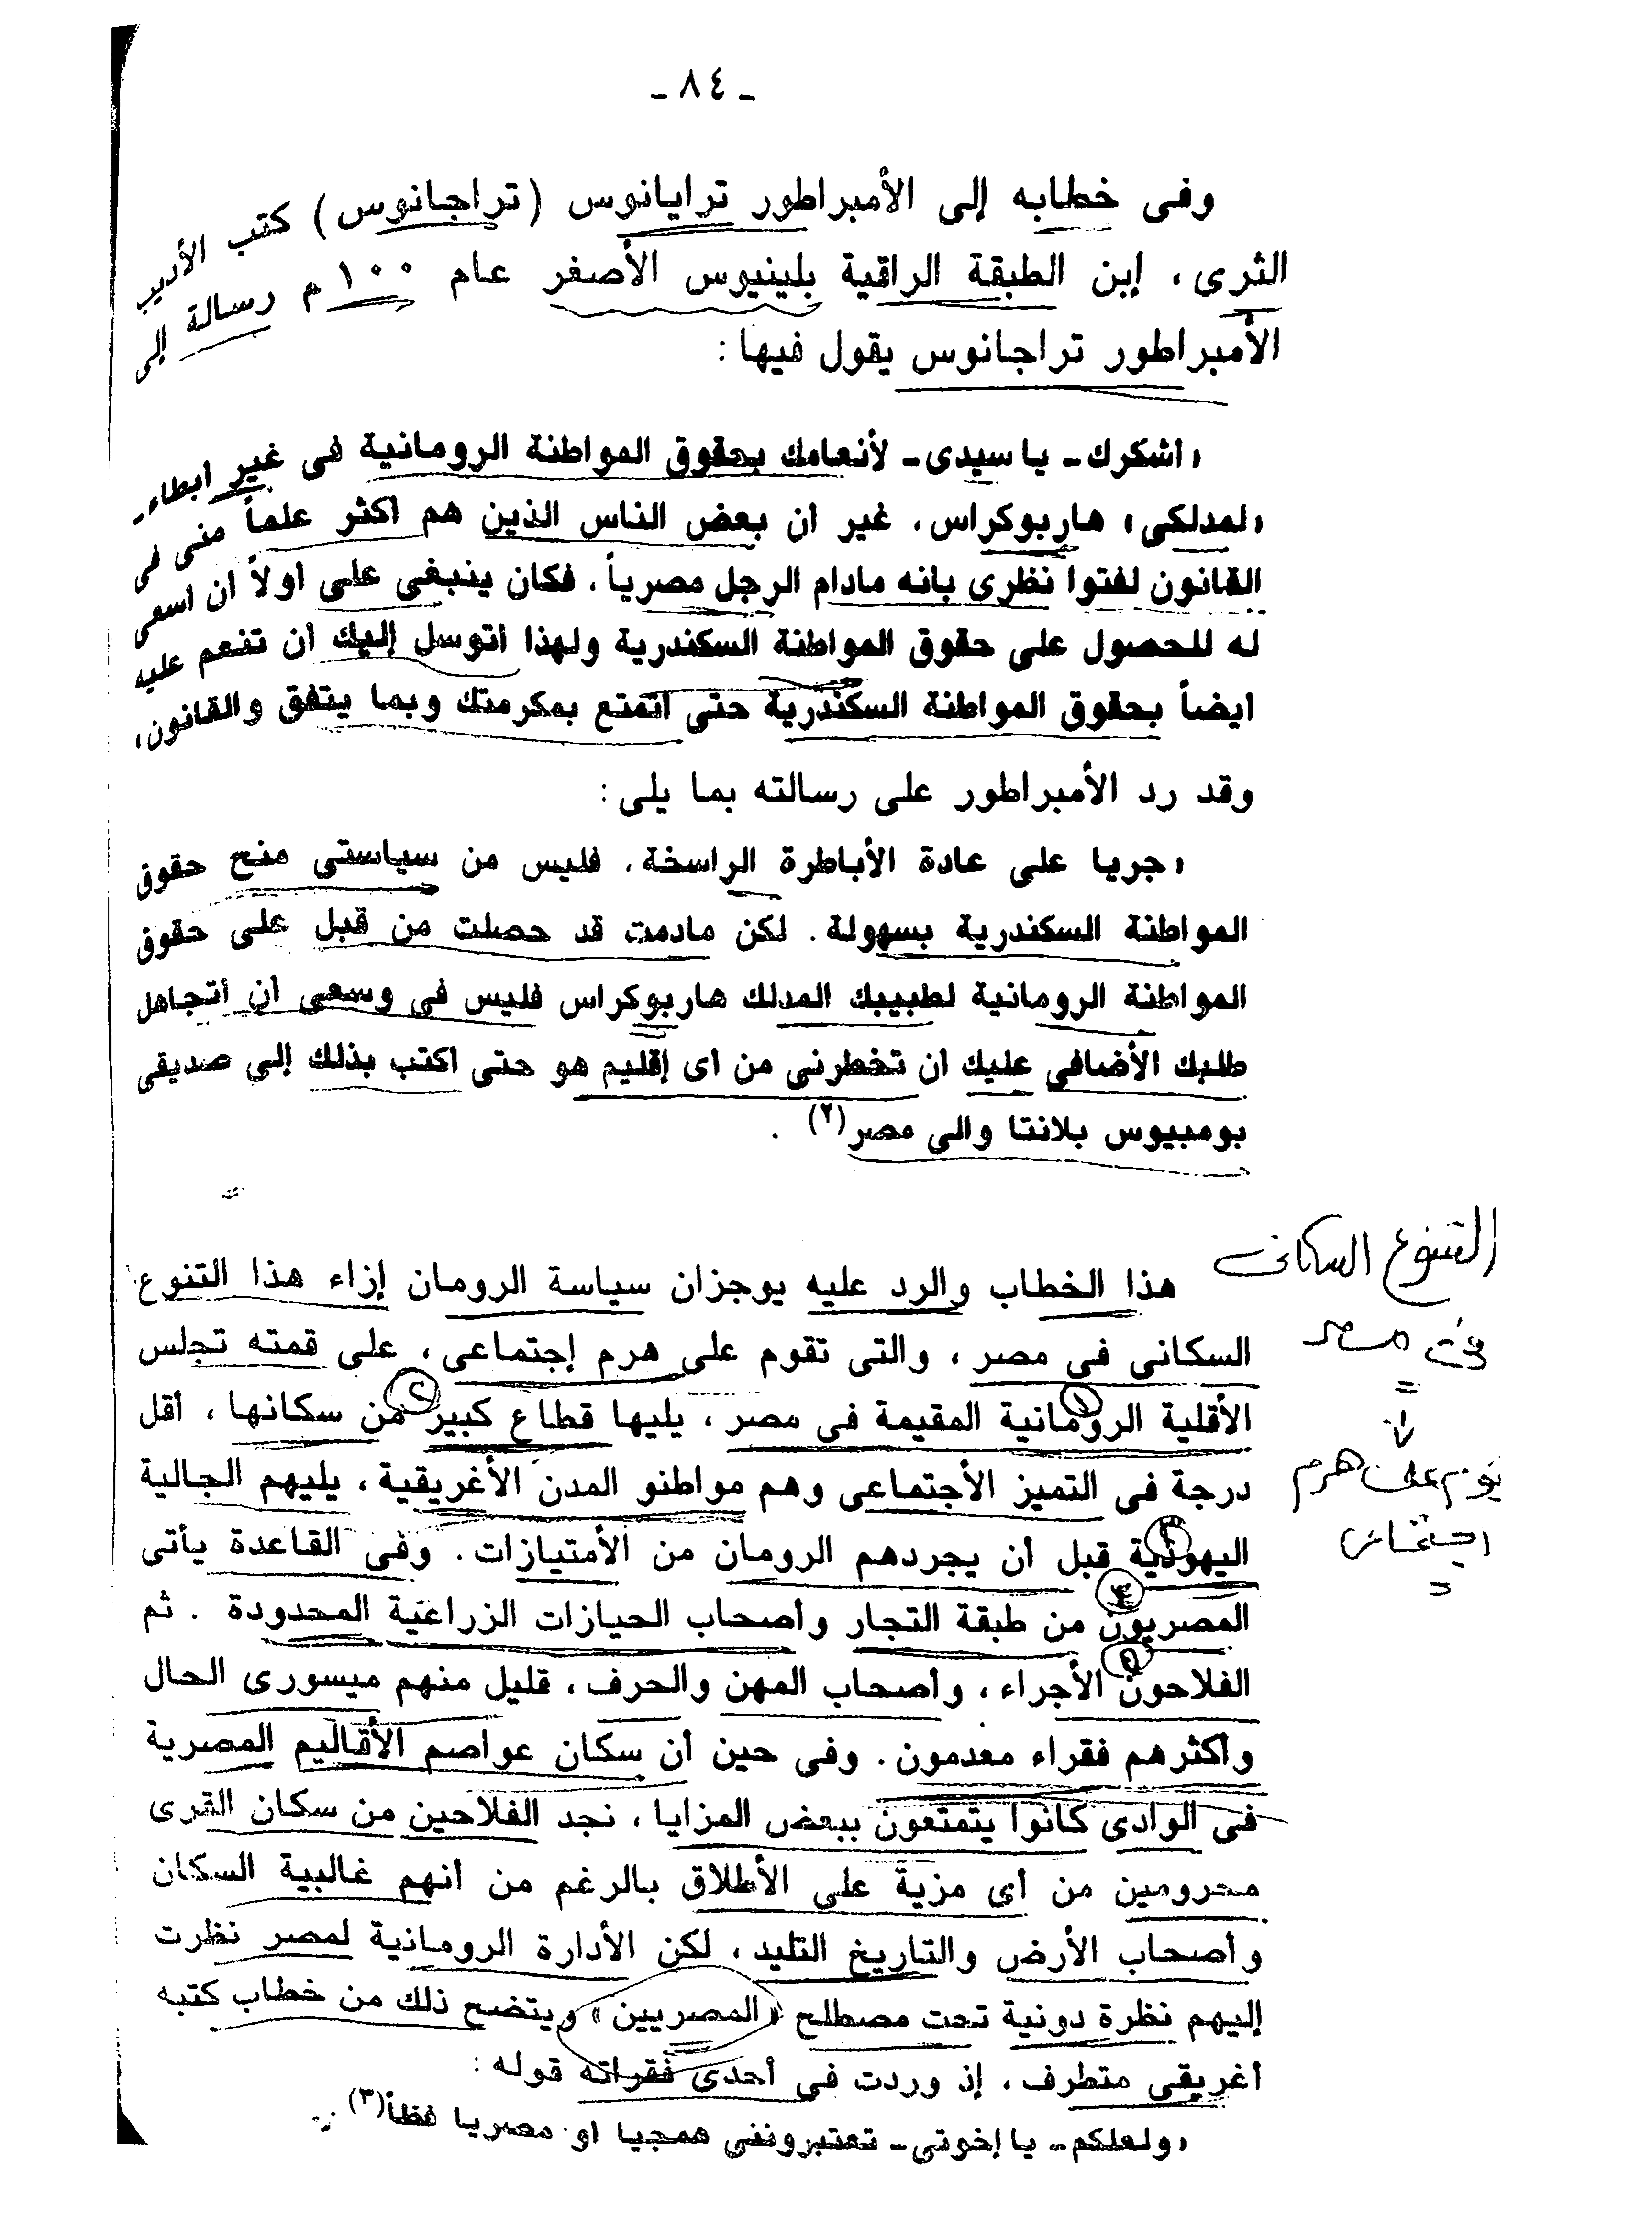 - ٨٤ -
وفى خطابه إلى الأمبراطور ترايانوس (تراجانوس) كتب الأديب
الثرى، إبن الطبقة الراقية بلينيوس الأصغر عام ١٠٠ م رسالة إلى
الأمبراطور تراجانوس يقول فيها:
«أشكرك - يا سيدى - لأنعامك بحقوق المواطنة الرومانية فى غير ابطاء -
«لمدلكى» هاربوكراس، غير ان بعض الناس الذين هم أكثر علماً منى فى
القانون لفتوا نظرى بانه مادام الرجل مصرياً، فكان ينبغى على اولاً ان اسعى
له للحصول على حقوق المواطنة السكندرية ولهذا أتوسل إليك ان تنعم عليه
ايضاً بحقوق المواطنة السكندرية حتى اتمتع بمكرمتك وبما يتفق والقانون»
وقد رد الأمبراطور على رسالته بما يلى:
«جريا على عادة الأباطرة الراسخة، فليس من سياستى منح حقوق
المواطنة السكندرية بسهولة. لكن مادمت قد حصلت من قبل على حقوق
المواطنة الرومانية لطبيبك المدلك هاربوكراس فليس فى وسعى أن أتجاهل
طلبك الأضافى عليك ان تخطرنى من اى إقليم هو حتى اكتب بذلك إلى صديقى
بومبيوس بلانتا والى مصر(٢).
التنوع السكانى
فى مصر
=
يقوم على هرم
اجتماعى
هذا الخطاب والرد عليه يوجزان سياسة الرومان إزاء هذا التنوع
السكانى فى مصر، والتى تقوم على هرم إجتماعى، على قمته تجلس
الأقلية الرومانية المقيمة فى مصر، يليها قطاع كبير من سكانها، أقل
درجة فى التميز الأجتماعى وهم مواطنو المدن الأغريقية، يليهم الجالية
اليهودية قبل أن يجردهم الرومان من الأمتيازات. وفى القاعدة يأتى
المصريون من طبقة التجار وأصحاب الحيازات الزراعية المحدودة. ثم
الفلاحون الأجراء، وأصحاب المهن والحرف، قليل منهم ميسورى الحال
وأكثرهم فقراء معدمون. وفى حين أن سكان عواصم الأقاليم المصرية
فى الوادى كانوا يتمتعون ببعض المزايا، نجد الفلاحين من سكان القرى
محرومين من أى مزية على الأطلاق بالرغم من أنهم غالبية السكان
وأصحاب الأرض والتاريخ التليد، لكن الأدارة الرومانية لمصر نظرت
إليهم نظرة دونية تحت مصطلح «المصريين» ويتضح ذلك من خطاب كتبه
أغريقى متطرف، إذ وردت فى أحدى فقراته قوله:
«ولعلكم - يا إخوتى - تعتبروننى همجيا او مصريا فظأ(٣)